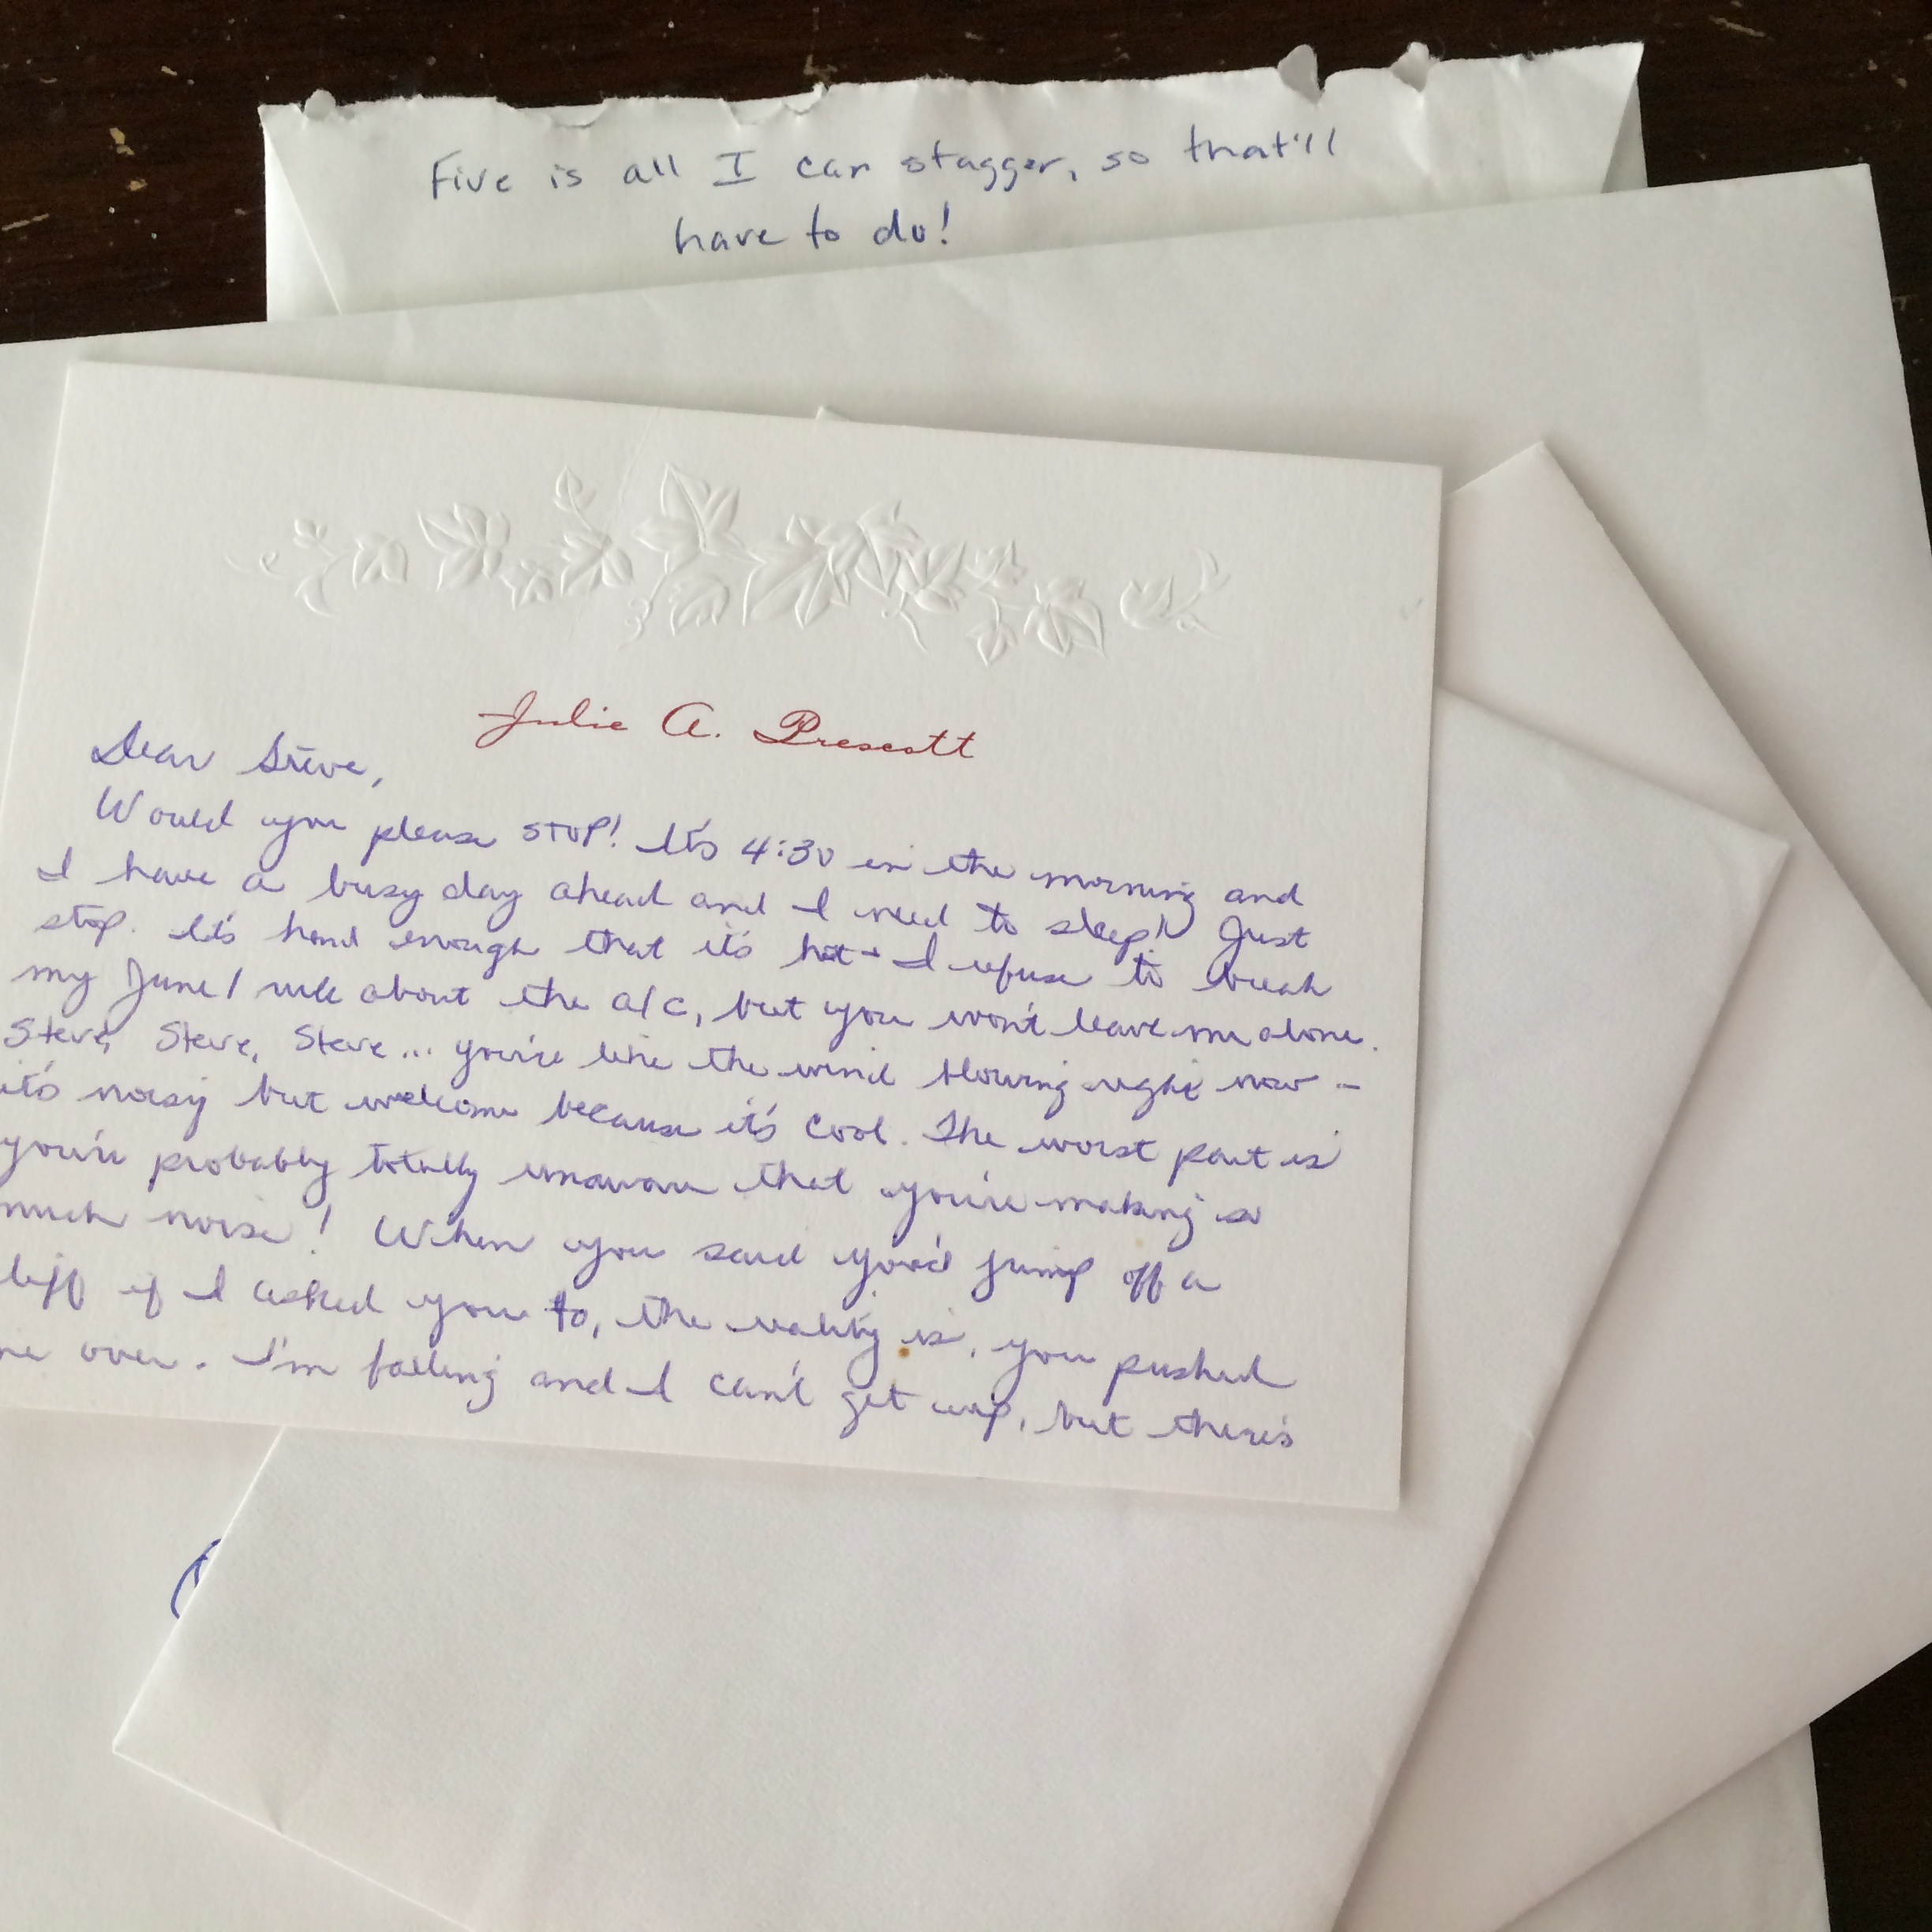 Five is all I can stagger, so that'll
have to do!
Julie A. Prescott
Dear Steve,
Would you please STOP! It's 4:30 in the morning and
I have a busy day ahead and I need to sleep! Just
stop. It's hard enough that it's hot + I refuse to break
my June 1 rule about the a/c, but you won't leave me alone.
Steve, Steve, Steve... you're like the wind blowing right now -
it's noisy but welcome because it's cool. The worst part is
you're probably totally unaware that you're making so
much noise! When you said you'd jump off a
liff if I asked you to, the reality is, you pushed
me over. I'm falling and I can't get up, but there's